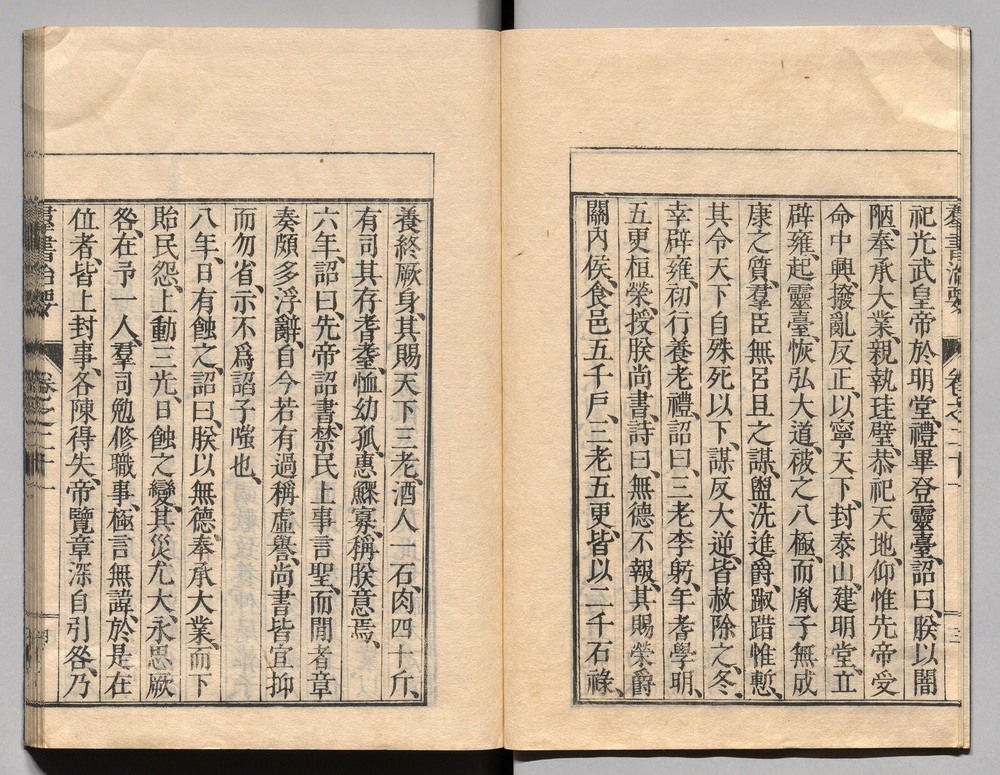 羣書治要 卷之二十一 三
祀光武皇帝於明堂、禮畢登靈臺、詔曰、朕以闇
陋、奉承大業、親執珪璧、恭祀天地、仰惟先帝受
命中興、撥亂反正、以寧天下、封泰山、建明堂、立
辟雍、起靈臺、恢弘大道、被之八極、而胤子無成
康之質、羣臣無呂旦之謀、盥洗進爵、踧踖惟慙、
其令天下自殊死以下、謀反大逆、皆赦除之、冬、
幸辟雍、初行養老禮、詔曰、三老李躬、年耆學明、
五更桓榮、授朕尚書、詩曰、無德不報、其賜榮爵
關內侯、食邑五千戶、三老五更、皆以二千石祿、
養終厥身、其賜天下三老、酒人一石、肉四十斤、
有司其存耆耋、恤幼孤、惠鰥寡、稱朕意焉、
六年、詔曰、先帝詔書、禁民上事言聖、而閒者章
奏頗多浮辭、自今若有過稱虛譽、尚書皆宜抑
而勿省、示不爲諂子嗤也、
八年、日有蝕之、詔曰、朕以無德、奉承大業、而下
貽民怨、上動三光、日蝕之變、其災尤大、永思厥
咎、在予一人、羣司勉修職事、極言無諱、於是在
位者、皆上封事、各陳得失、帝覽章深自引咎、乃
羣書治要 卷之二十一